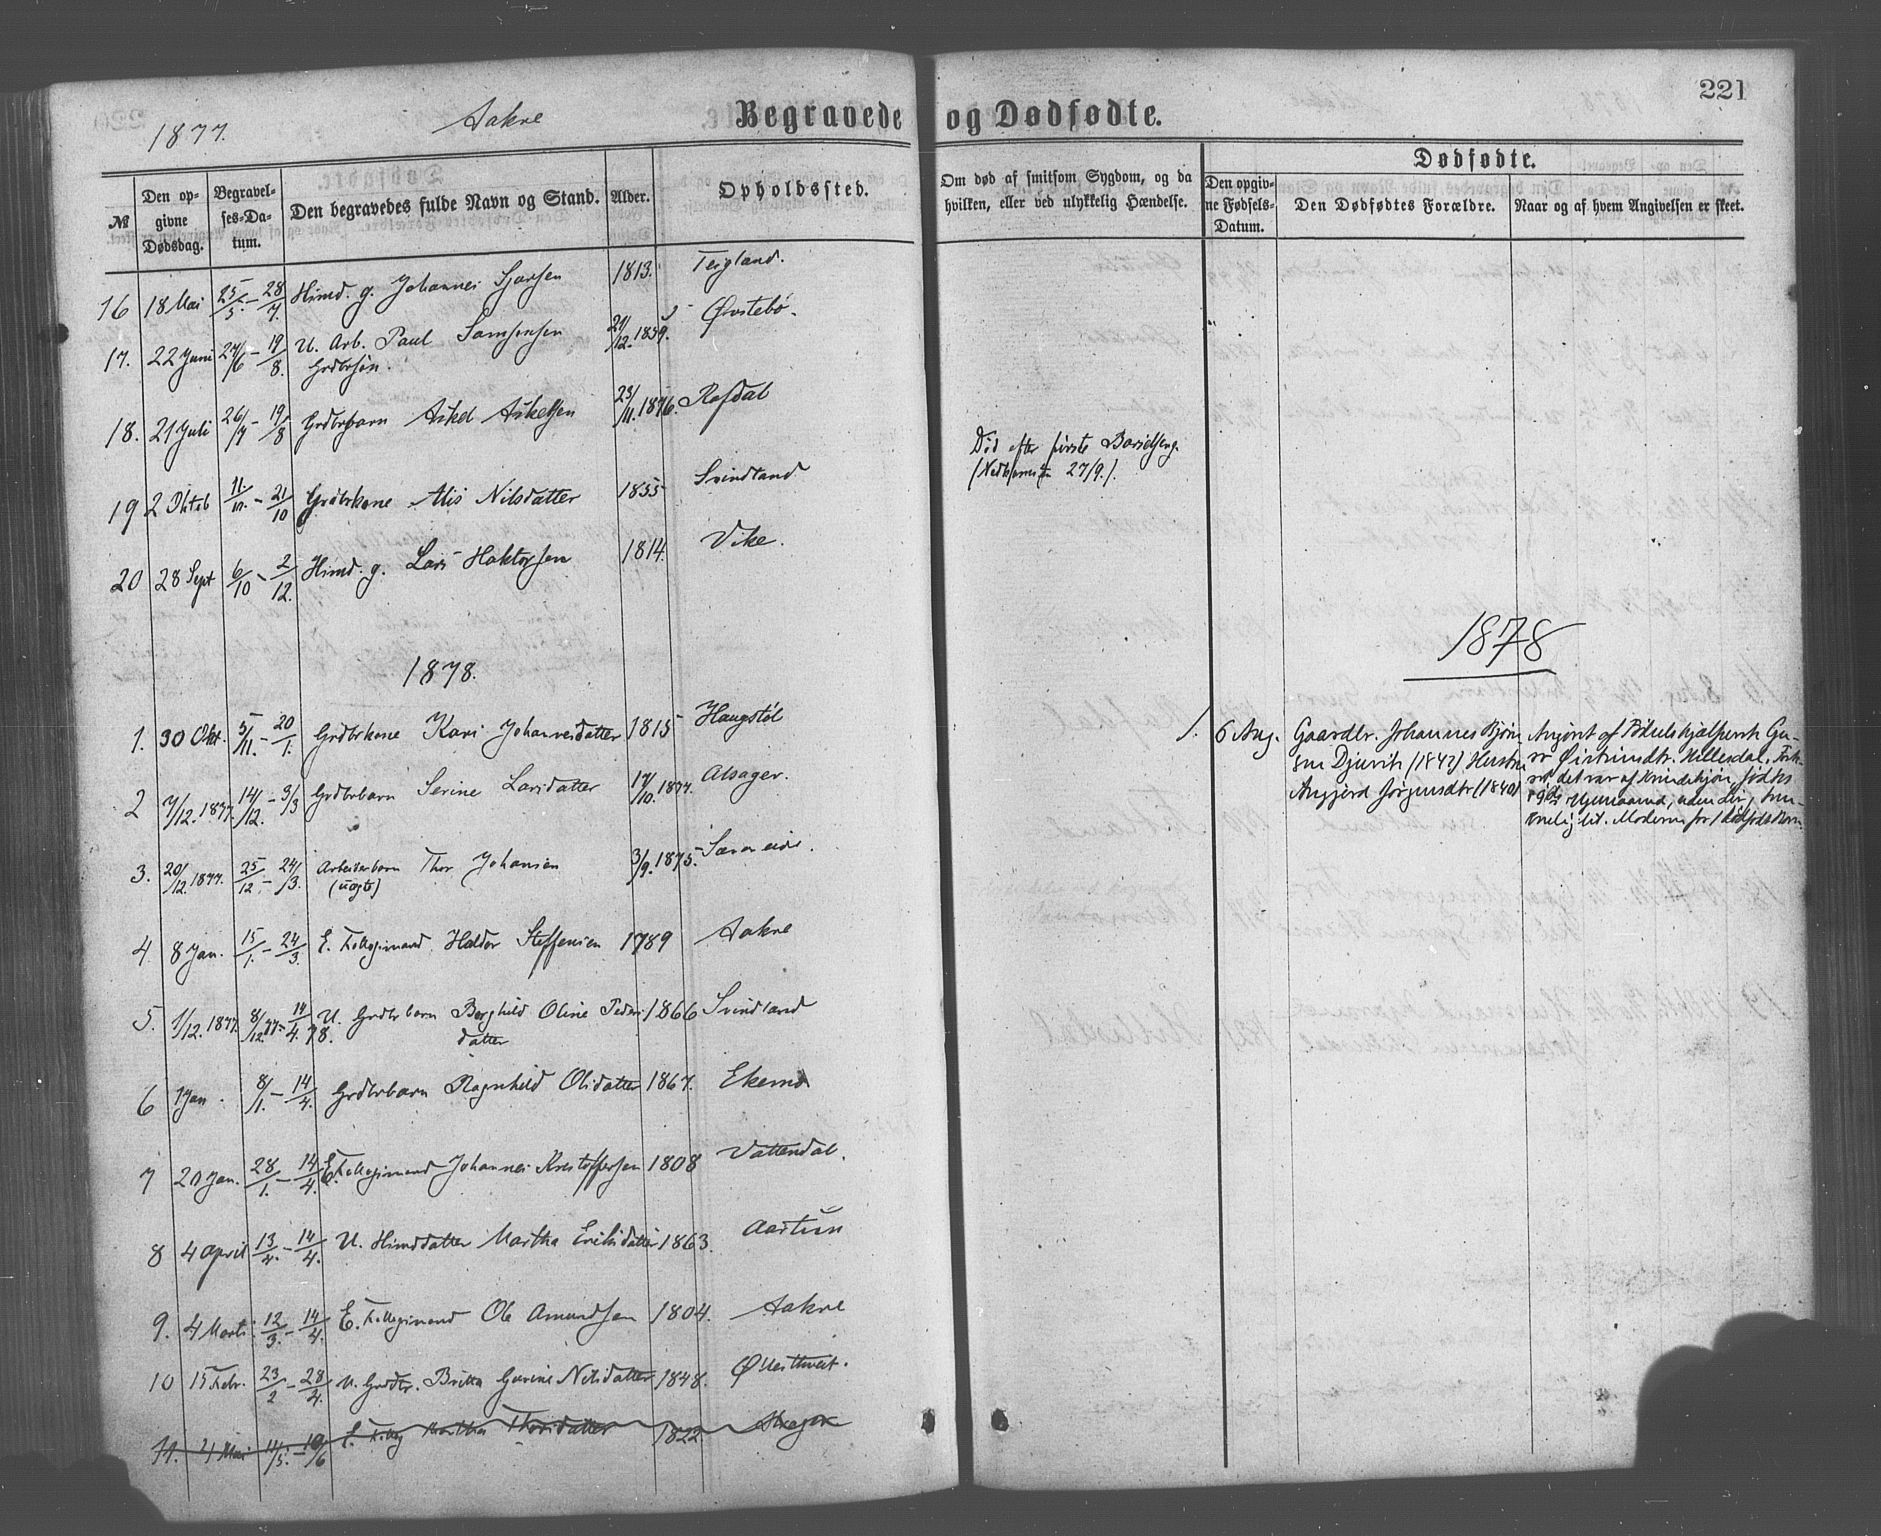 221
1877.
Aakre
Begravede og Dødfødte.
№
Den op-
givne
Dødsdag.
Begravel-
ses-Da-
tum.
Den begravedes fulde Navn og Stand.
Alder.
Opholdssted.
Om død af smitsom Sygdom, og da
hvilken, eller ved ulykkelig Hændelse.
Dødfødte.
Den opgiv-
ne Fødsels-
Datum.
Den Dødfødtes Forældre.
Naar og af hvem Angivelsen er skeet.
16 18 Mai 25/5 - 28/7. Huusmd. g. Johannes Sjursen 1813. Teigland.
17. 22 Juni 24/6 - 19/8. U. Arb. Paul Samsonsen 21/12. 1859. Østebø.
Grdbrsøn.
18. 21 Juli 26/7 - 19/8 Grdbrbarn Askel Askelsen 23/11. 1876. Rafdal
19 2 Oktob 11/10. - 21/10 Grdbrkone Alis Nilsdatter 1855 Svindland
Død efter første Barselseng.
27/9.).
20 28 Sept 6/10 - 2/12. Huusmd. g. Lars Haktorsen 1814. Vike.
1878.
1878
1. 30 Okt. 5/11. - 20/1. Grdbrkone Kari Johannesdatter 1815 Haugstøl
2 7/12. 1877. 14/12. - 3/3 Grdbrbarn Serine Larsdatter 17/10. 1877. Alsager.
3. 20/12. 1877. 25/12. - 24/3. Arbeiderbarn Thor Johansen 3/9. 1875.
(uægte)
4. 8 Jan. 15/1. - 24/3. E. Hallor Steffensen 1789 Aakre
5. 1/12. 1877. 8/12.77 - 14/4. 78. U. Grdbrbarn Borghild Oline Peders 1866 Svindland
datter
6 1 Jan. 8/1. - 14/4. Grdbrbarn Ragnhild Olsdatter 1867. Ekemo
7 20 Jan. 28/1. - 14/4. E. Johannes Kristoffersen 1808 Vattendal.
8 4 April 13/4. - 14/4. U. Huusmdatter Martha Eriksdatter 1863.
9. 4 Marts 12/3. - 14/4. E. Ole Amundsen 1804. Aakre
10 15 Febr. 23/2 - 28/4. U. Grdbr. Britta Gurine Nilsdatter 1848.
11. 4 Mai 11/5. - 10/6 E. Martha Thorsdatter 1822
1. 6 Aug. Gaardbr. Johannes Bjørn
sen Djuvik (1842) Hustru
Angjerd Jørgensdtr (1840)
Angivet af Fødselshjælpersk Gu-
det var af Kvindekjøn, fødtes
uden Liv,
Moderen før 1 dødfødt Barn.